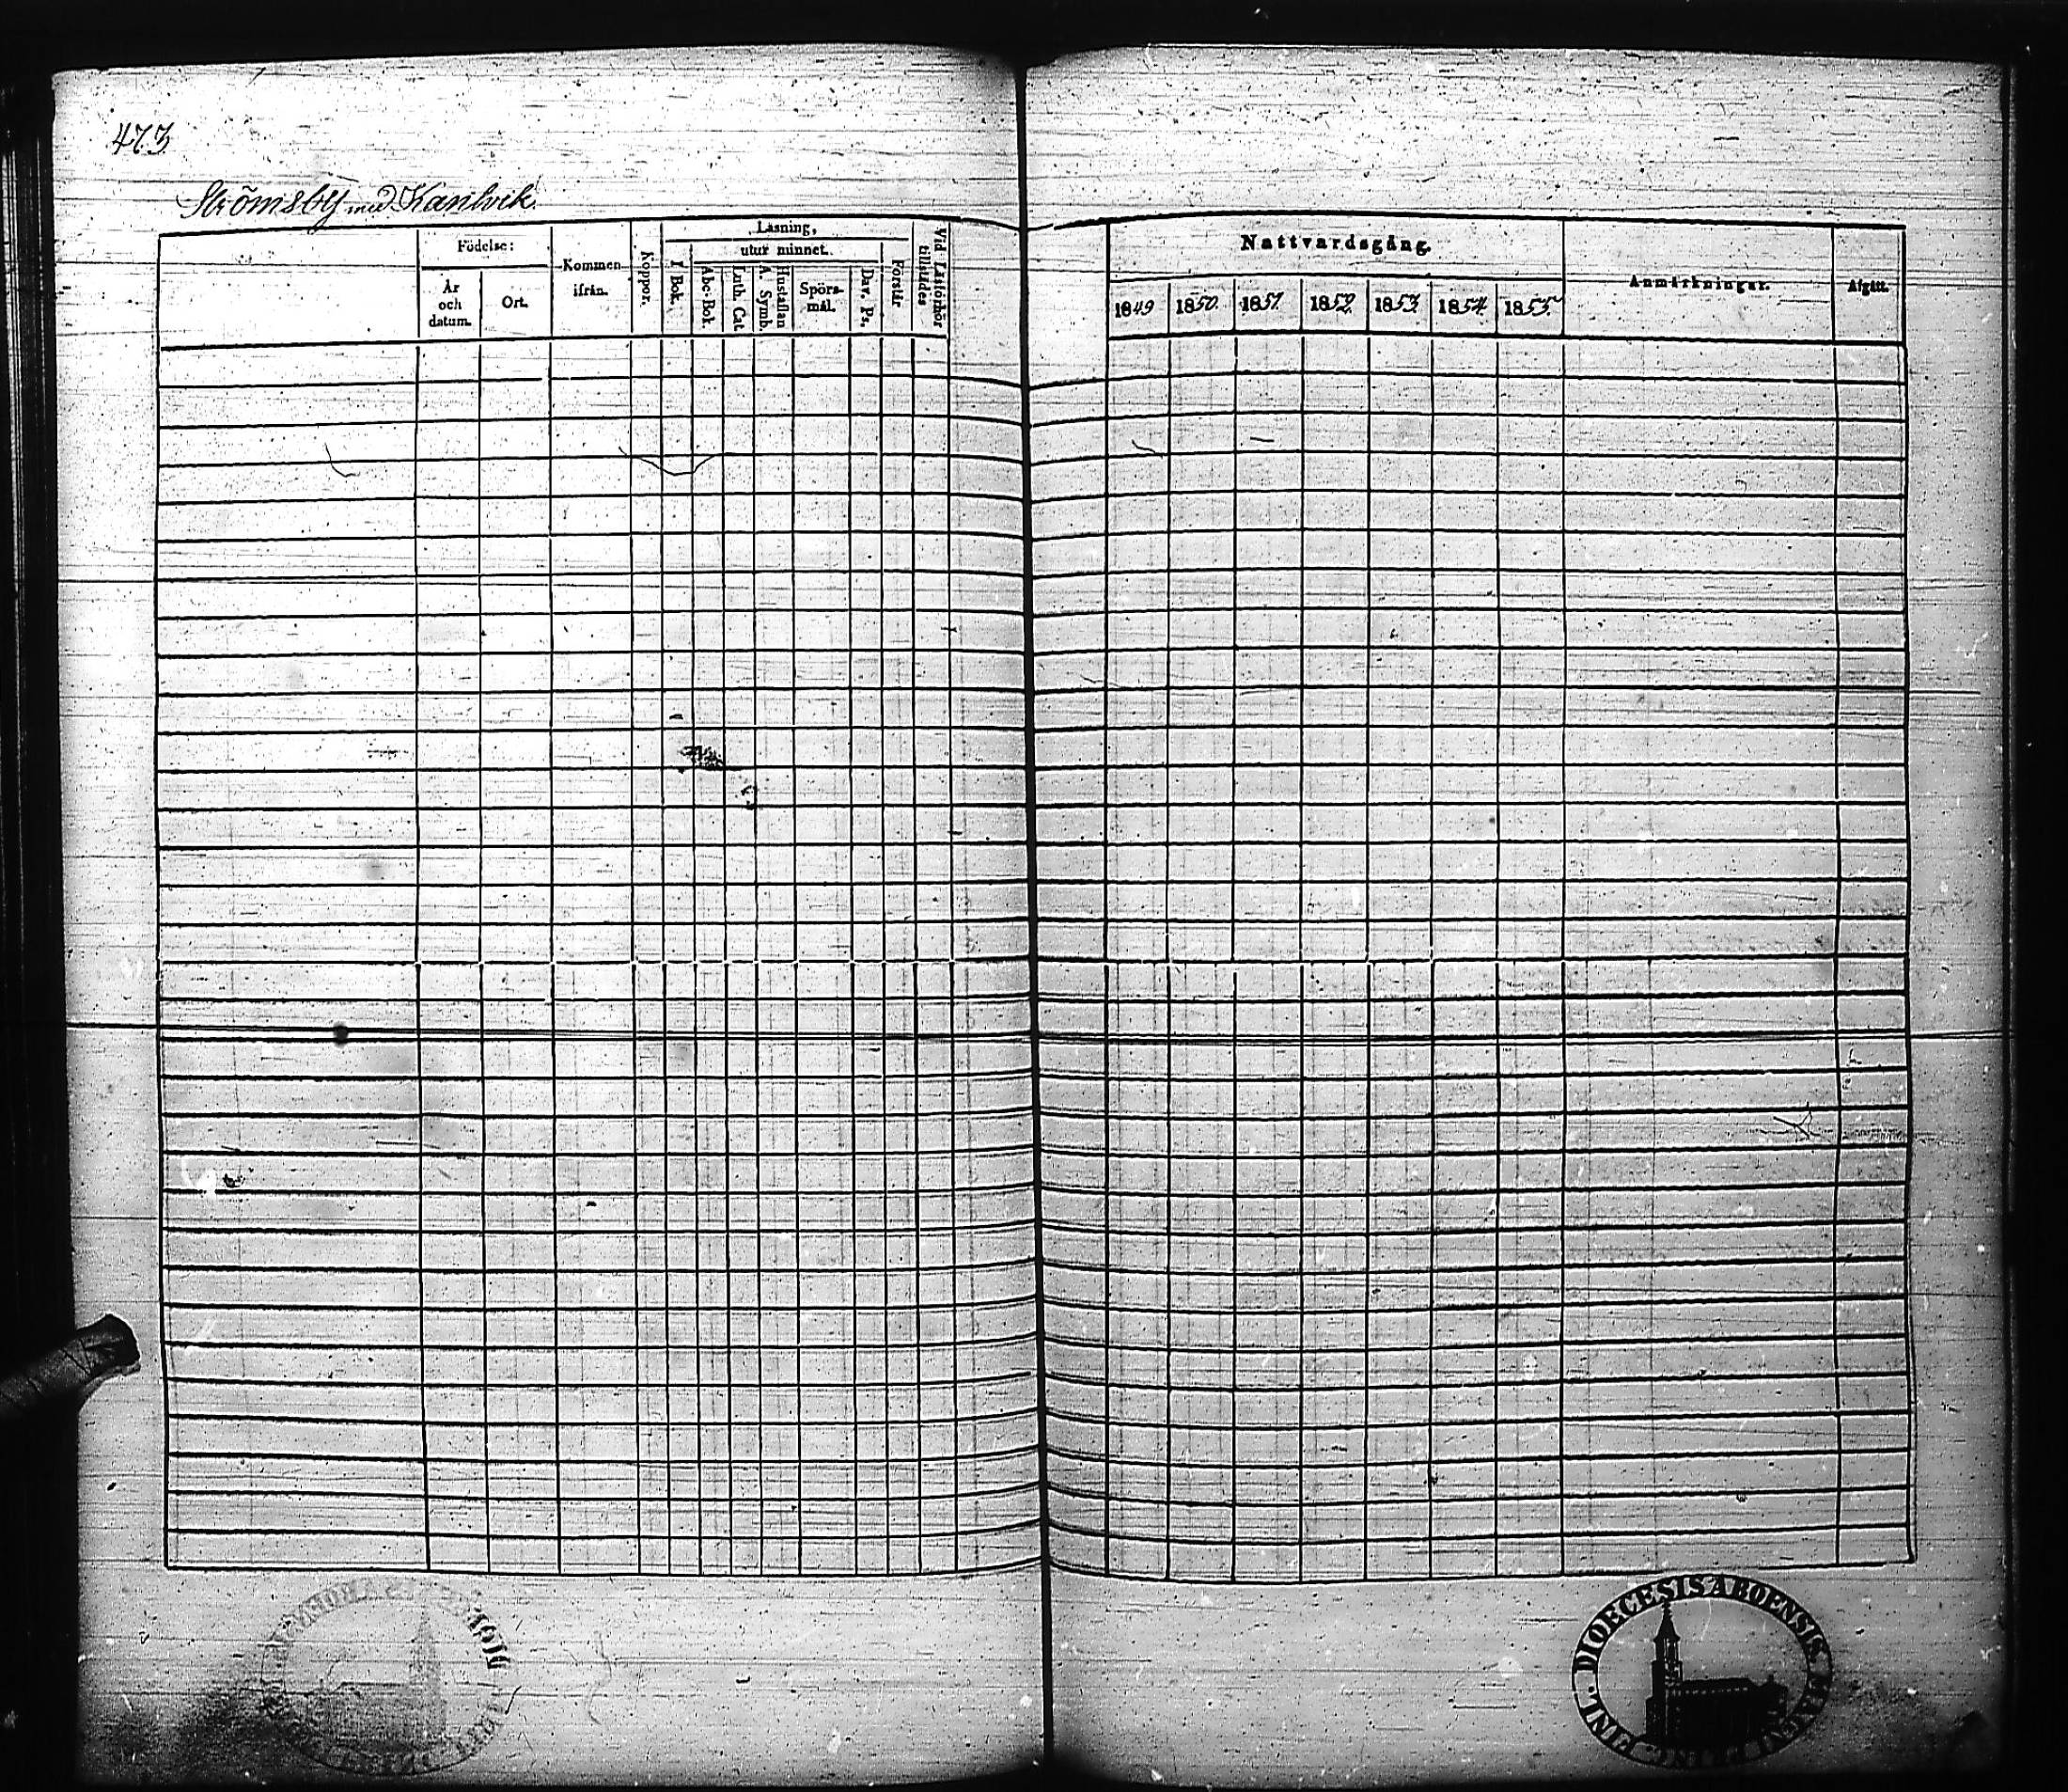 473
Strömsby med Kanlvik
Födelse:
År
och
datum.
Ort.
Kommen
ifrån.
Koppor.
Läsning,
I Bok.
utur minnet.
Abc-Bok
Luth. Cat
A. Symb.
Hustaflan
Spörs-
mål.
Dav. Ps.
Förstår
Vid Läsförhör
tillstädes
Nattvardsgång.
1849 1850. 1851. 1852. 1853. 1854. 1855.
Anmärkningar.
Afgått.
DIOECESIS ABOENSIS